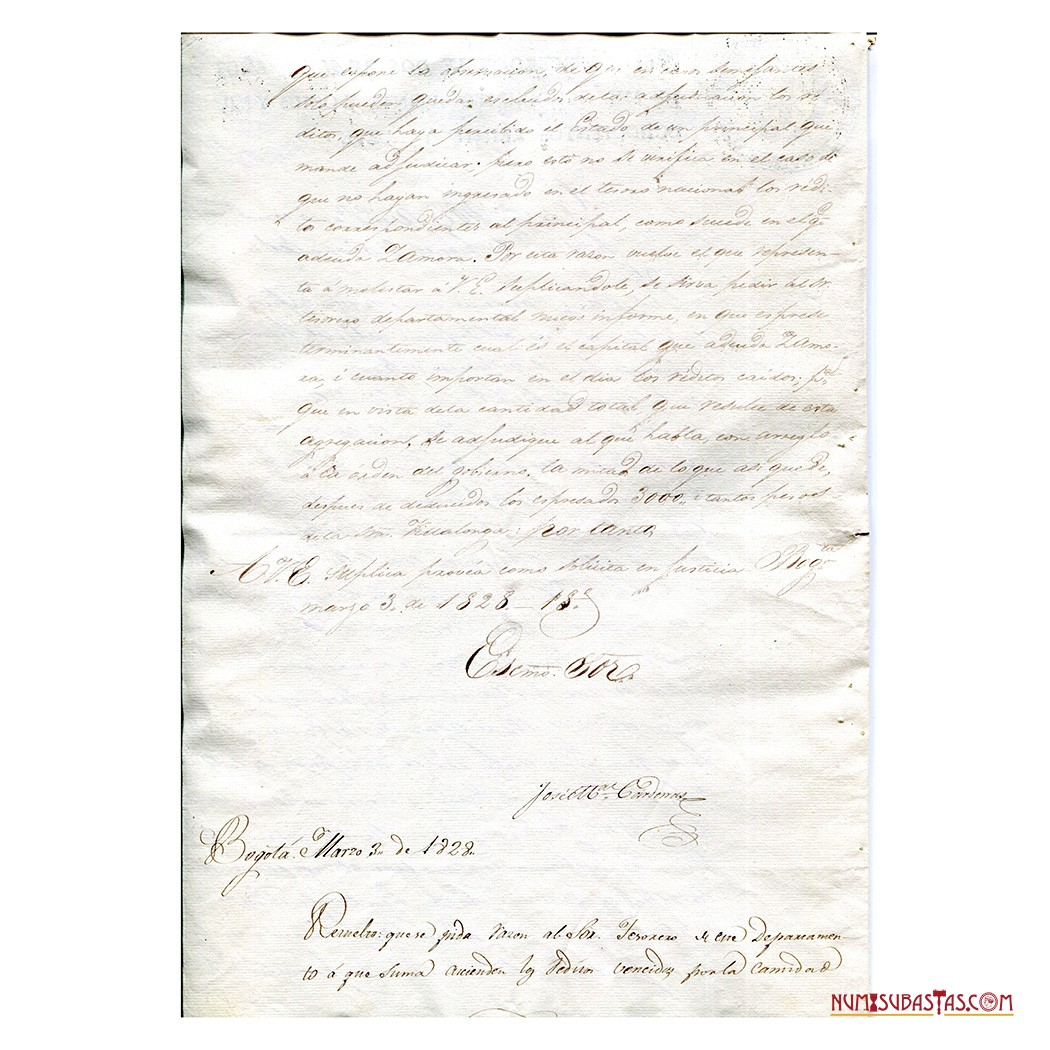 que expone la observacion, de que en casos semejantes
solo pueden quedar escluidos de la adjudicacion los ré-
ditos, que haya percibido el Estado de un principal que
mande adjudicar; pero esto no se verifica en el caso de
que no hayan ingresado en el tesoro nacional los rédi-
tos correspondientes al principal, como sucede en el qe
adeuda Zamora. Por esta razon vuelve el que represen-
ta á molestar á V.E. suplicandole, se sirva pedir al Sr.
tesorero departamental nuevo informe, en que esprese
terminantemente cual es el capital que adeuda Zamo-
ra, i cuanto importan en el dia los réditos caidos; pa
que en vista de la cantidad total, que resulte de esta
agregacion, se adjudique al que habla, con arreglo
á la orden del gobierno, la mitad de lo que asi quede,
despues de deducidos los espresados 3000,, i tantos pesos
de la Sra. Villalonga: por tanto
A V.E. suplica provéa como solicita en justicia Bogta
marzo 3. de 1828.-18.
Escmo. Sor.
José Ma. Cardenas
Bogotá. Marzo 3. de 1828.
Resuelto: que se pida razon al Sor. Tesorero de este Departamen
to á que suma acienden los réditos vencidos por la cantidad
NUMISUBASTAS.COM